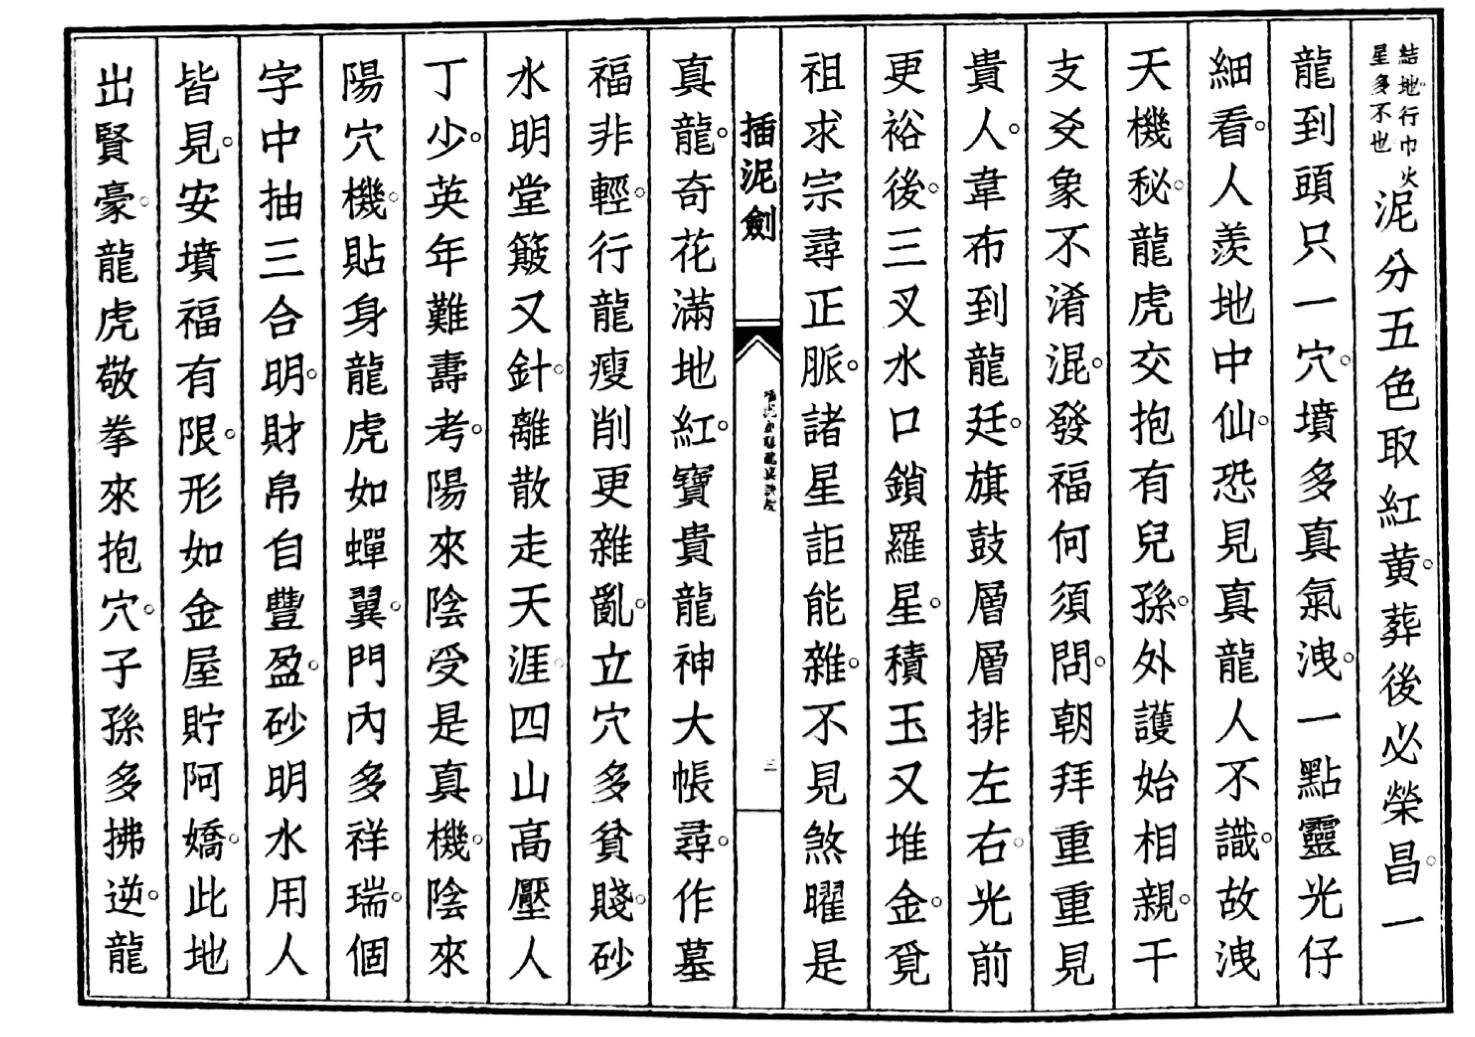 結地行巾火
星多不也
泥分五色取紅黄。葬後必榮昌。一
龍到頭只一穴。墳多真氣洩。一點靈光仔
細看。人羨地中仙。恐見真龍人不識。故洩
天機秘。龍虎交抱有兒孫。外護始相親。干
支爻象不淆混。發福何須問。朝拜重重見
貴人。韋布到龍廷。旗鼓層層排左右。光前
更裕後。三叉水口鎖羅星。積玉又堆金。覓
祖求宗尋正脈。諸星詎能雜。不見煞曜是
插泥劍
三
真龍。奇花滿地紅。寶貴龍神大帳尋。作墓
福非輕。行龍瘦削更雜亂。立穴多貧賤。砂
水明堂簸又針。離散走天涯。四山高壓人
丁少。英年難壽考。陽來陰受是真機。陰來
陽穴機。貼身龍虎如蟬翼。門內多祥瑞。個
字中抽三合明。財帛自豐盈。砂明水用人
皆見。安墳福有限。形如金屋貯阿嬌。此地
出賢豪。龍虎敬拳來抱穴。子孫多拂逆。龍